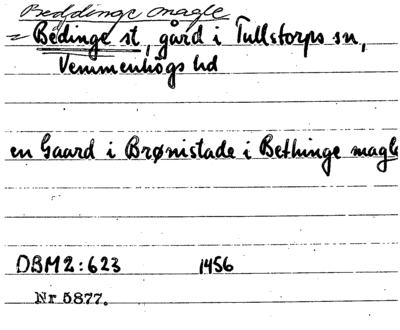 Beddinge magle
= Bedinge st, gård i Tullstorps sn,
Vemmenhögs hd
en Gaard i Brønistade i Bethinge magle
DBM2:623 1456
Nr 5877.